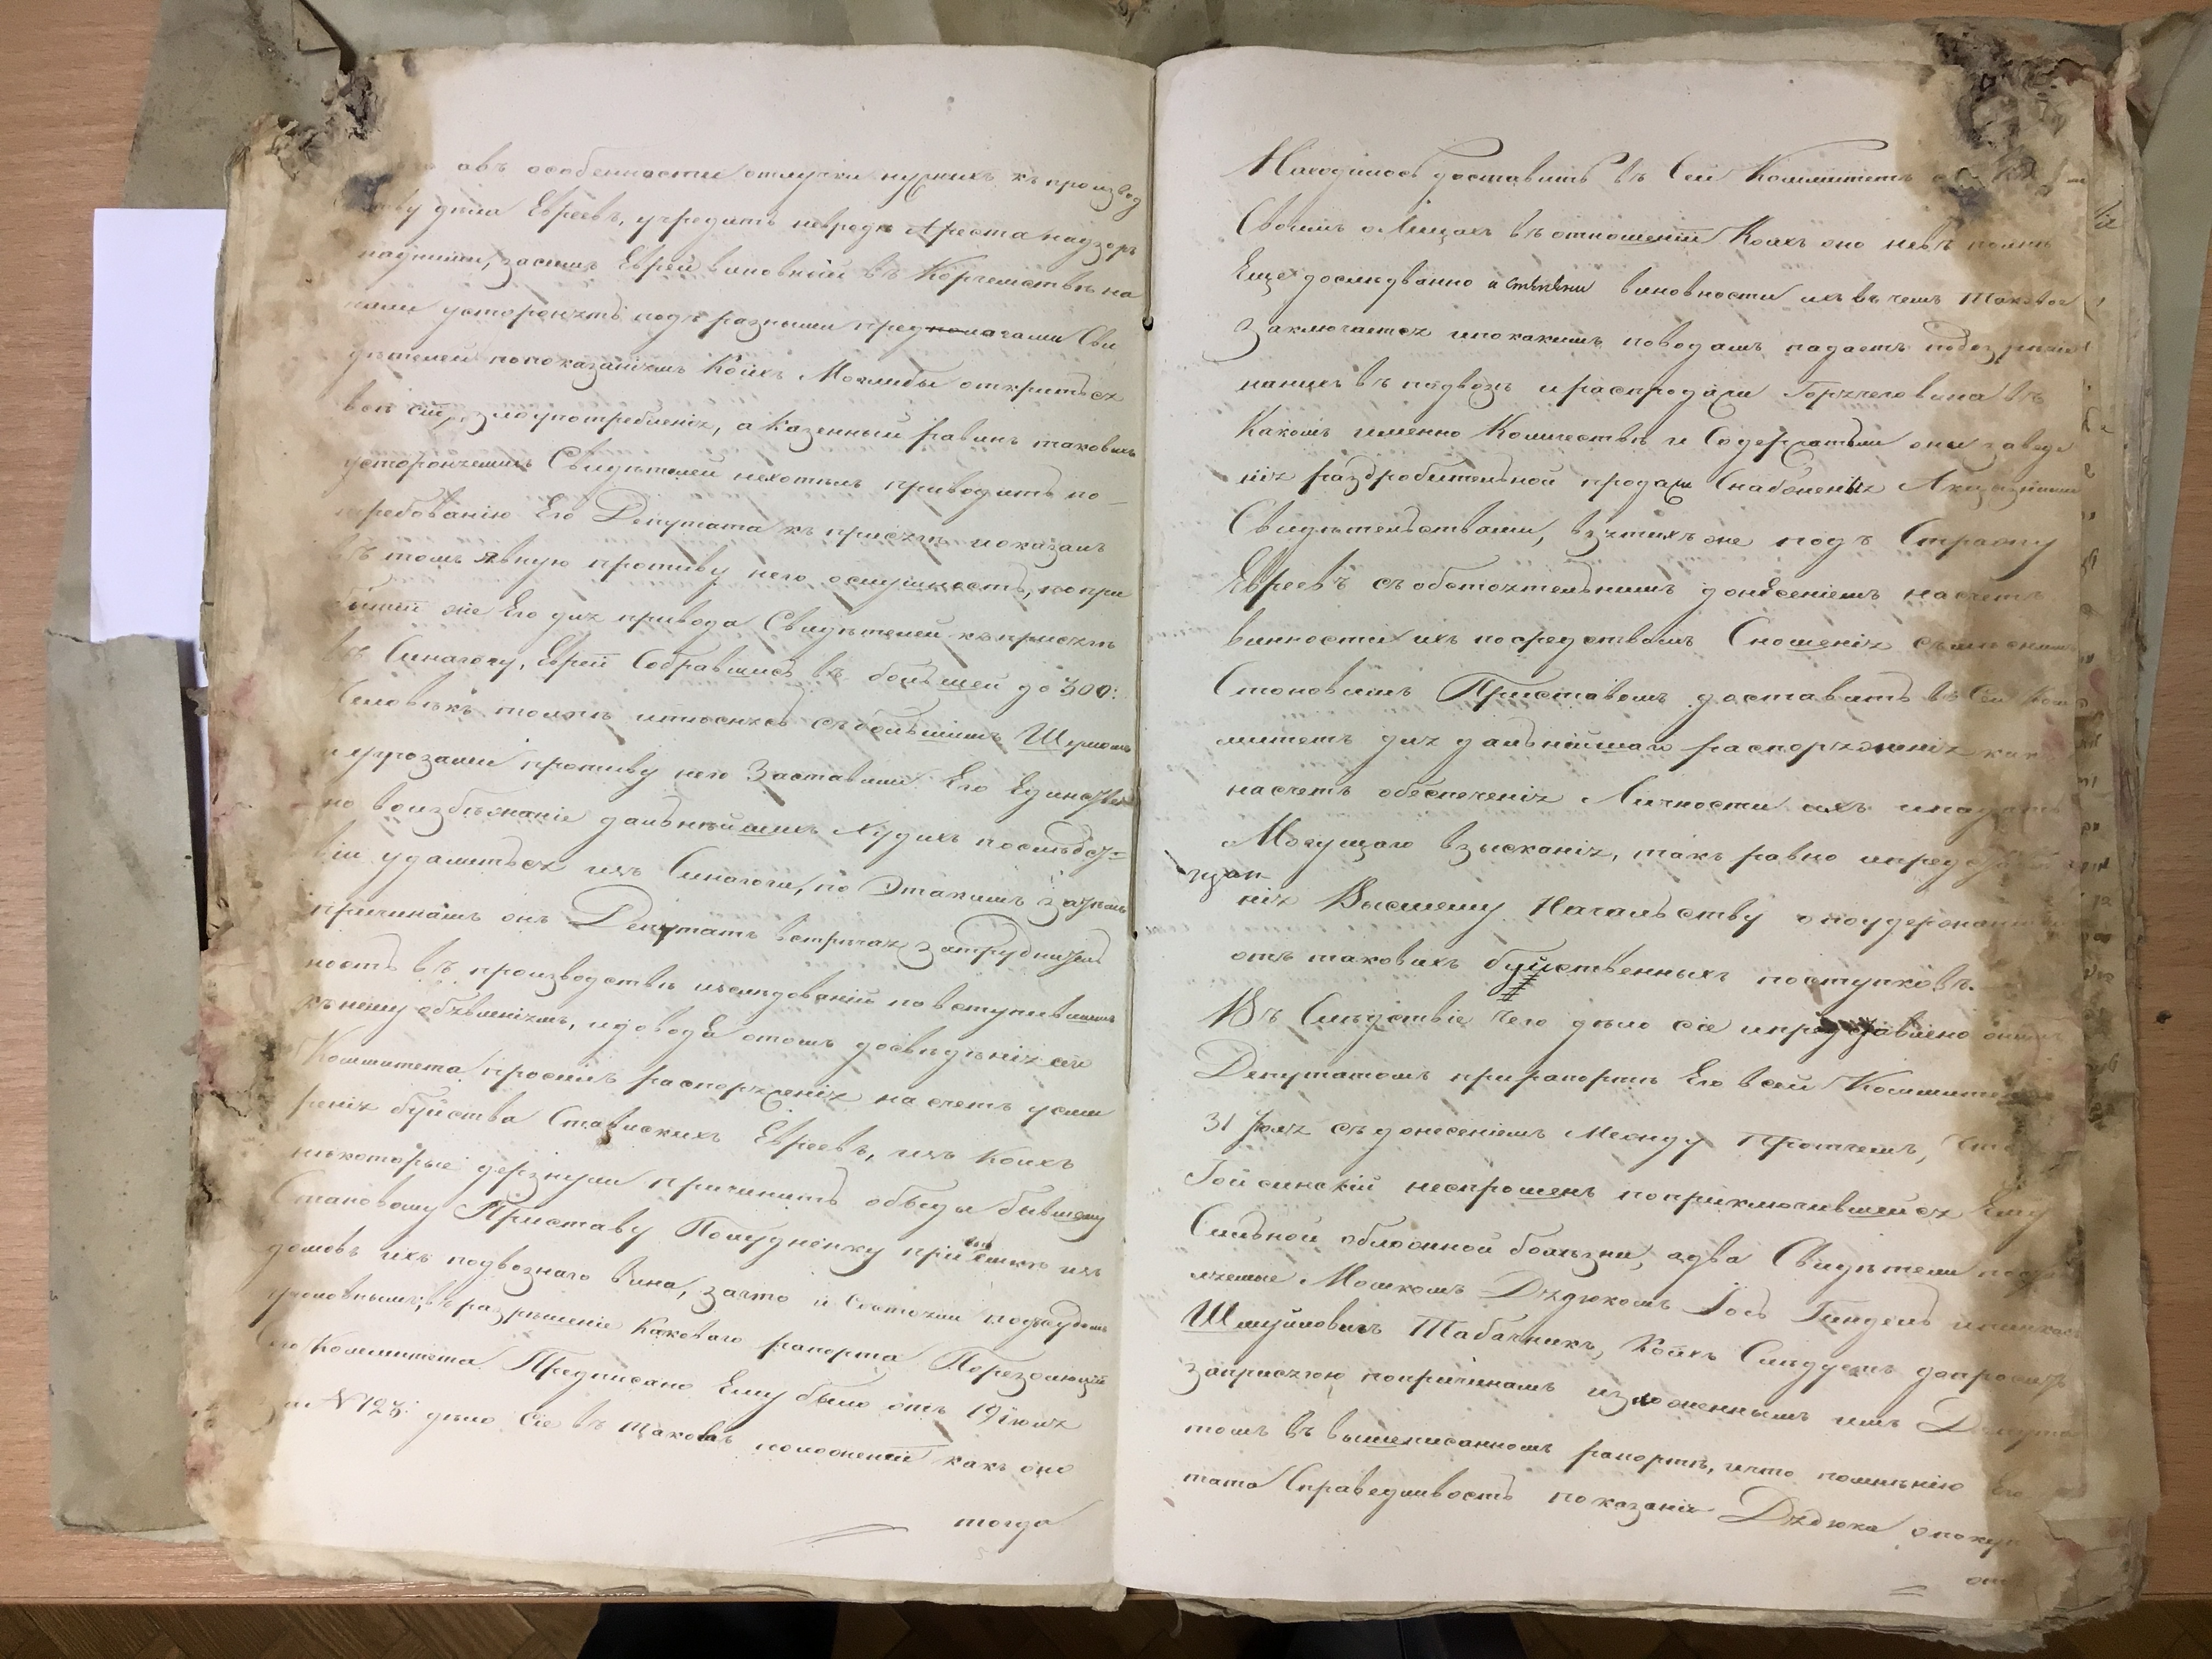 объ особенности отлучки нужныхъ къ производ
ству дѣла Евреевъ, учредить невроде Ареста надзоръ
надними, засимъ Еврей виновный въ Корчемствѣ на
чали усторонять подъ разными предлогами Сви
дѣтелей попоказаніямъ Коихъ Моглибы открыться
всѣ сіи, злоупотребленія, а Казенный равинъ таковыхъ
усторонченныхъ Свидѣтелей нехотѣлъ приводить по
требованію Его Депутата къ присягѣ и оказалъ
въ томъ явную противу него ослушность, попри
бытіи же Его для привода Свидѣтелей къ присягѣ
въ Синагогу, Евреи Собравшись въ большей до 300:
Человѣкъ толпѣ и тѣснясь съ большимъ Шумомъ
и угрозами противу него Заставили Его Единствен
но воизбѣжаніе дальнѣйшихъ Худыхъ послѣдст
вій удалиться изъ Синагоги, по Этакимъ
причинамъ онъ Депутатъ встрѣчая затруднитель
ность въ производствѣ изслѣдованій по вступившимъ
къ нему объявленіямъ, и доводя отомъ досвѣдѣнія сего
Коммитета просилъ распоряженія на счетъ усми
ренія буйства Ставискихъ Евреевъ, изъ Коихъ
нѣкоторые дерзнули причинить обиды бывшему
Становому Приставу Полудненку при изъ
домовъ ихъ подвознаго вина, зачто и Состояли подсудом
уголовнымъ, въ разрѣшеніе Каковаго рапорта Порезолюціи
сего Коммитета Предписано Ему было отъ 19 іюля
за № 123: дѣло Сіе въ таковомъ положеніи какъ оно
тогда
Находилось доставить въ Сей Коммитетъ
Своимъ о Лицахъ въ отношеніи Коихъ оно невъ полнѣ
Еще дослѣдванно и степени виновности ихъ въ чемъ таковая
Заключается ипокакимъ поводамъ падаетъ подозрѣніе
нанихъ въ подвозѣ и распродажи Горячего вина въ
Какомъ именно Количествѣ и Содержатели они заведе
нія раздробительной продажи Снабоженыя Акцизными
Свидѣтельствами, взятыхъ же подъ Стражу
Евреевъ съ обстоятельнымъ донесеніемъ насчетъ
винности ихъ посредствомъ Сношенія съ мѣстнымъ
Становымъ Приставомъ доставить въ Сей Ком
митетъ для дальнѣйшаго распоряженія как
насчетъ обеспеченія Личности ихъ и падать
Могущаго взысканія, такъ равно и предста
нія Высшему Начальству о поудержаніи
отъ таковыхъ буйственныхъ поступковъ.
Въ Слѣдствіе Чего дѣло сіе и представлено онымъ
Депутатомъ при рапортѣ Его в сей Коммитетъ
31 Іюля съ донесеніемъ Между Протчемъ, Что
Гойсинскій неспрошенъ поприключившейся Ему
Сильной обложной болѣзни, адва Свидѣтели подъ
Мошкомъ Дядюкомъ Іось Гиндель
Шмуйловичъ Табачникъ, Коихъ Слѣдуетъ допросить
заприсягою попричинамъ изложеннымъ имъ Депута
томъ въ вышеписанномъ рапортѣ, ичто помнѣнію Его
тата Справедливость показанія Дядюка о покуп